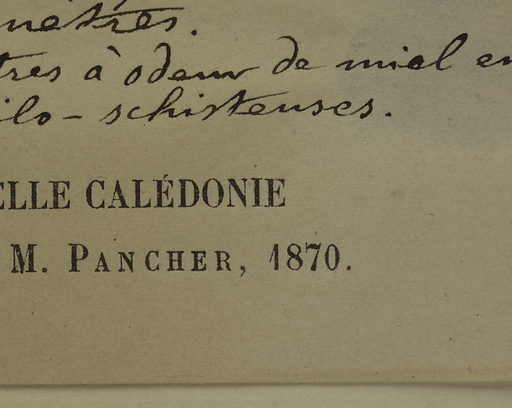 mètres.
tres à odeur de miel en
ilo-schisteuses.
ELLE CALÉDONIE
M. PANCHER, 1870.